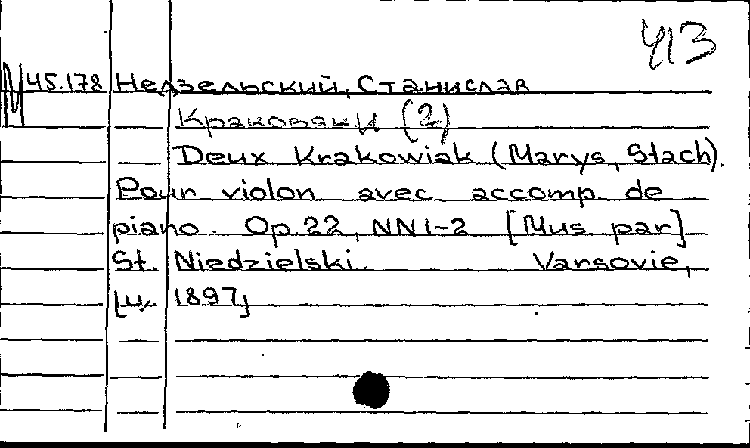 413
М 45.178 Недзельский, Станислав
Краковяки (2)
Deux Krakowiak (Marys, Stach).
Pour violon avec accomp. de
piano. Op. 22, NN 1-2 [Mus. par]
St. Niedzielski. Varsovie,
[ц. 1897]